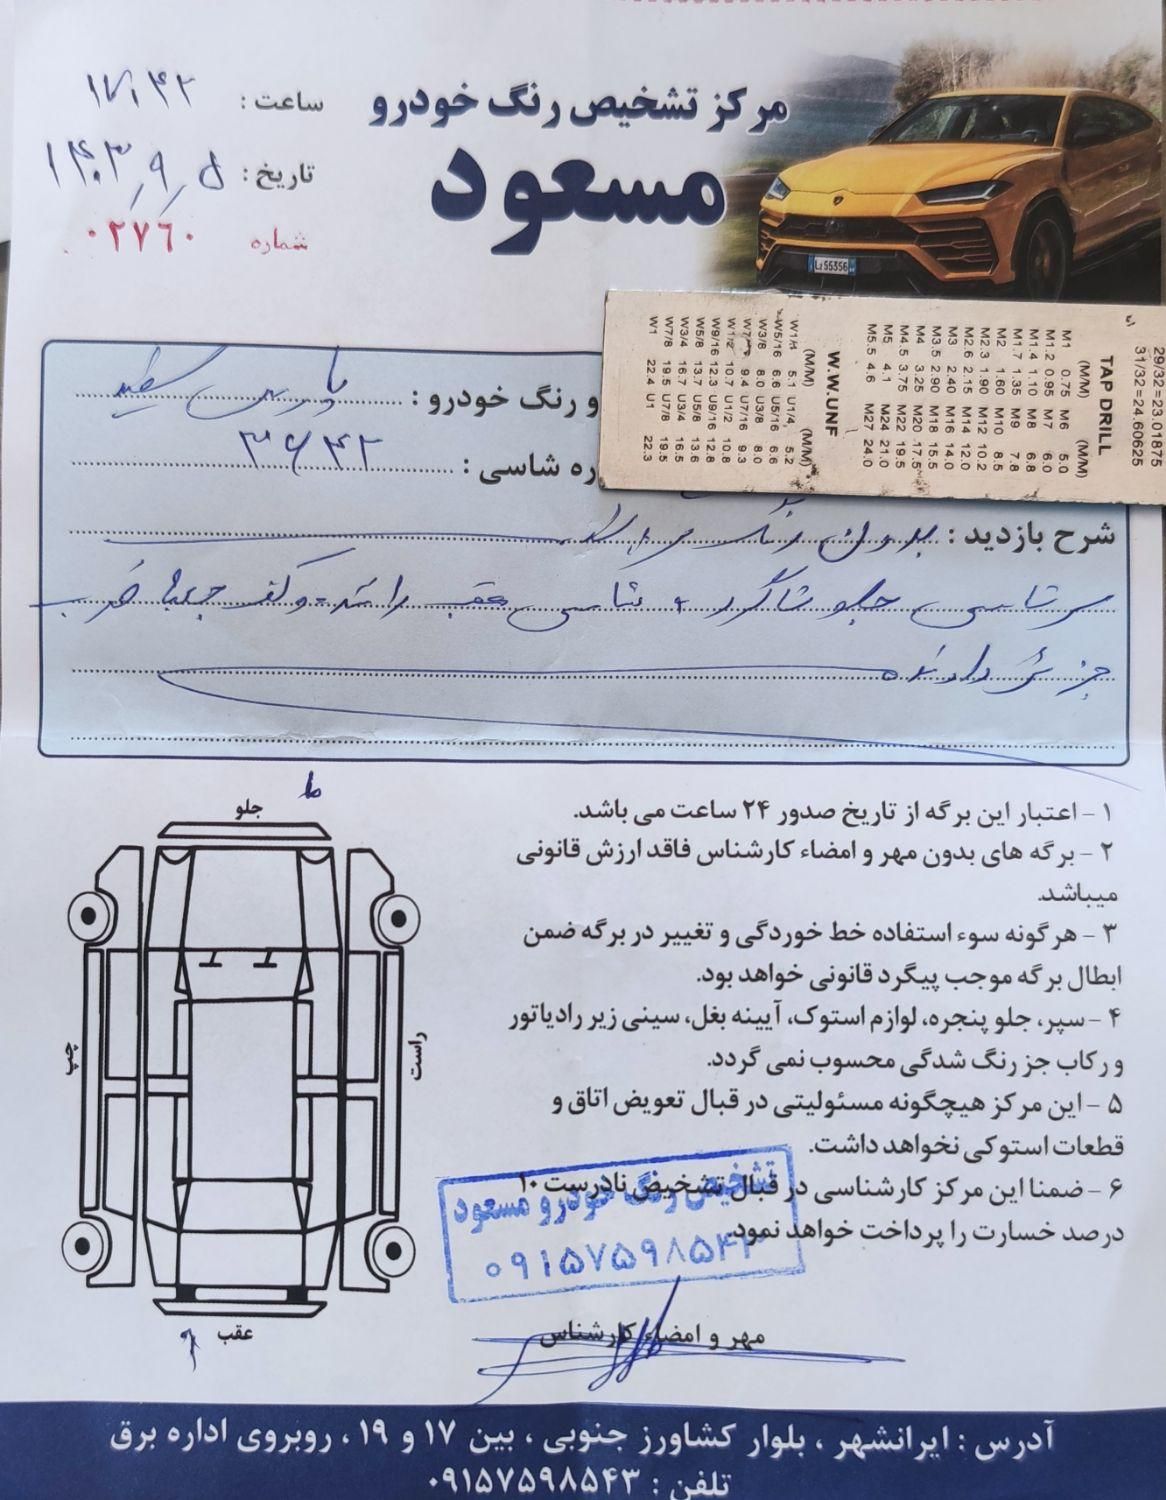 مرکز تشخیص رنگ خودرو
مسعود
ساعت : ۱۷:۴۲
تاریخ : ۱۴۰۳/۹/۵
شماره ۰۲۷۶۰
LZ 55356
29/32=23.01875
31/32=24.60625
TAP DRILL
(M/M) (M/M)
M1 0.75 M6 5.0
M1.2 0.95 M7 6.0
M1.4 1.10 M8 6.8
M1.7 1.35 M9 7.8
M2 1.60 M10 8.5
M2.3 1.90 M12 10.2
M2.6 2.15 M14 12.0
M3 2.40 M16 14.0
M3.5 2.90 M18 15.5
M4 3.25 M20 17.5
M4.5 3.75 M22 19.5
M5 4.1 M24 21.0
M5.5 4.6 M27 24.0
W.W.UNF
(M/M) (M/M)
W1/4 5.1 U1/4 5.2
W5/16 6.6 U5/16 6.6
W3/8 8.0 U3/8 8.0
W7/16 9.4 U7/16 9.3
W1/2 10.7 U1/2 10.8
W9/16 12.3 U9/16 12.8
W5/8 13.7 U5/8 13.6
W3/4 16.7 U3/4 16.5
W7/8 19.5 U7/8 19.5
W1 22.4 U1 22.3
و رنگ خودرو : پارس سفید
ره شاسی :
شرح بازدید : بدون رنگ
سرشاسی جلو شاگرد + شاسی عقب راننده و کف جعبه ضرب
جزئی دارند
جلو
چپ
راست
عقب
۱ - اعتبار این برگه از تاریخ صدور ۲۴ ساعت می باشد.
۲ - برگه های بدون مهر و امضاء کارشناس فاقد ارزش قانونی
میباشد.
۳ - هرگونه سوء استفاده خط خوردگی و تغییر در برگه ضمن
ابطال برگه موجب پیگرد قانونی خواهد بود.
۴ - سپر، جلو پنجره، لوازم استوک، آیینه بغل، سینی زیر رادیاتور
و رکاب جز رنگ شدگی محسوب نمی گردد.
۵ - این مرکز هیچگونه مسئولیتی در قبال تعویض اتاق و
قطعات استوکی نخواهد داشت.
۶ - ضمنا این مرکز کارشناسی در قبال تشخیض نادرست ۱۰
درصد خسارت را پرداخت خواهد نمود.
تشخیص رنگ خودرو مسعود
۰۹۱۵۷۵۹۸۵۴۳
مهر و امضاء کارشناس
آدرس : ایرانشهر ، بلوار کشاورز جنوبی ، بین ۱۷ و ۱۹ ، روبروی اداره برق
تلفن : ۰۹۱۵۷۵۹۸۵۴۳